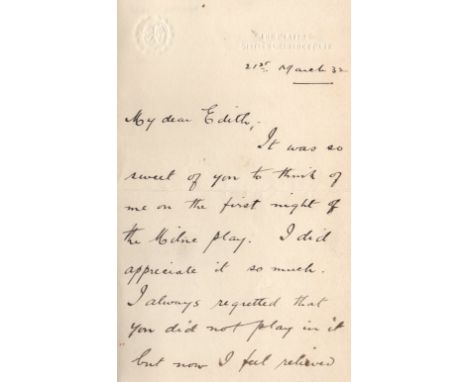 21st March 32
My dear Edith,
It was so
sweet of you to think of
me on the first night of
the Milne play. I did
appreciate it so much.
I always regretted that
you did not play in it
but now I feel relieved